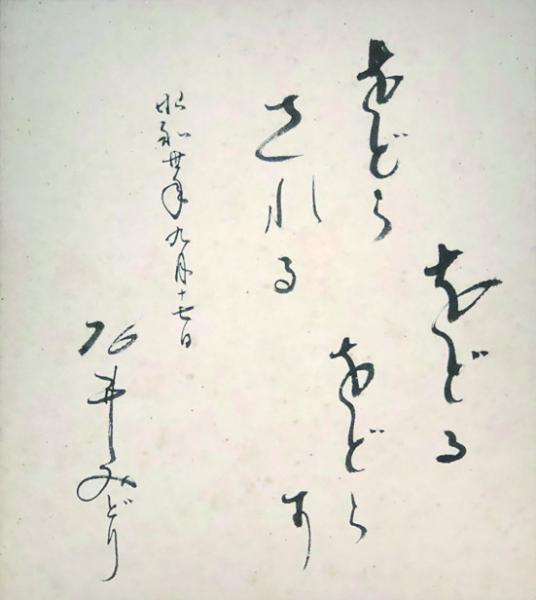 をどる
をどら
される
をどら
す
昭和廿年九月十七日
石井みどり